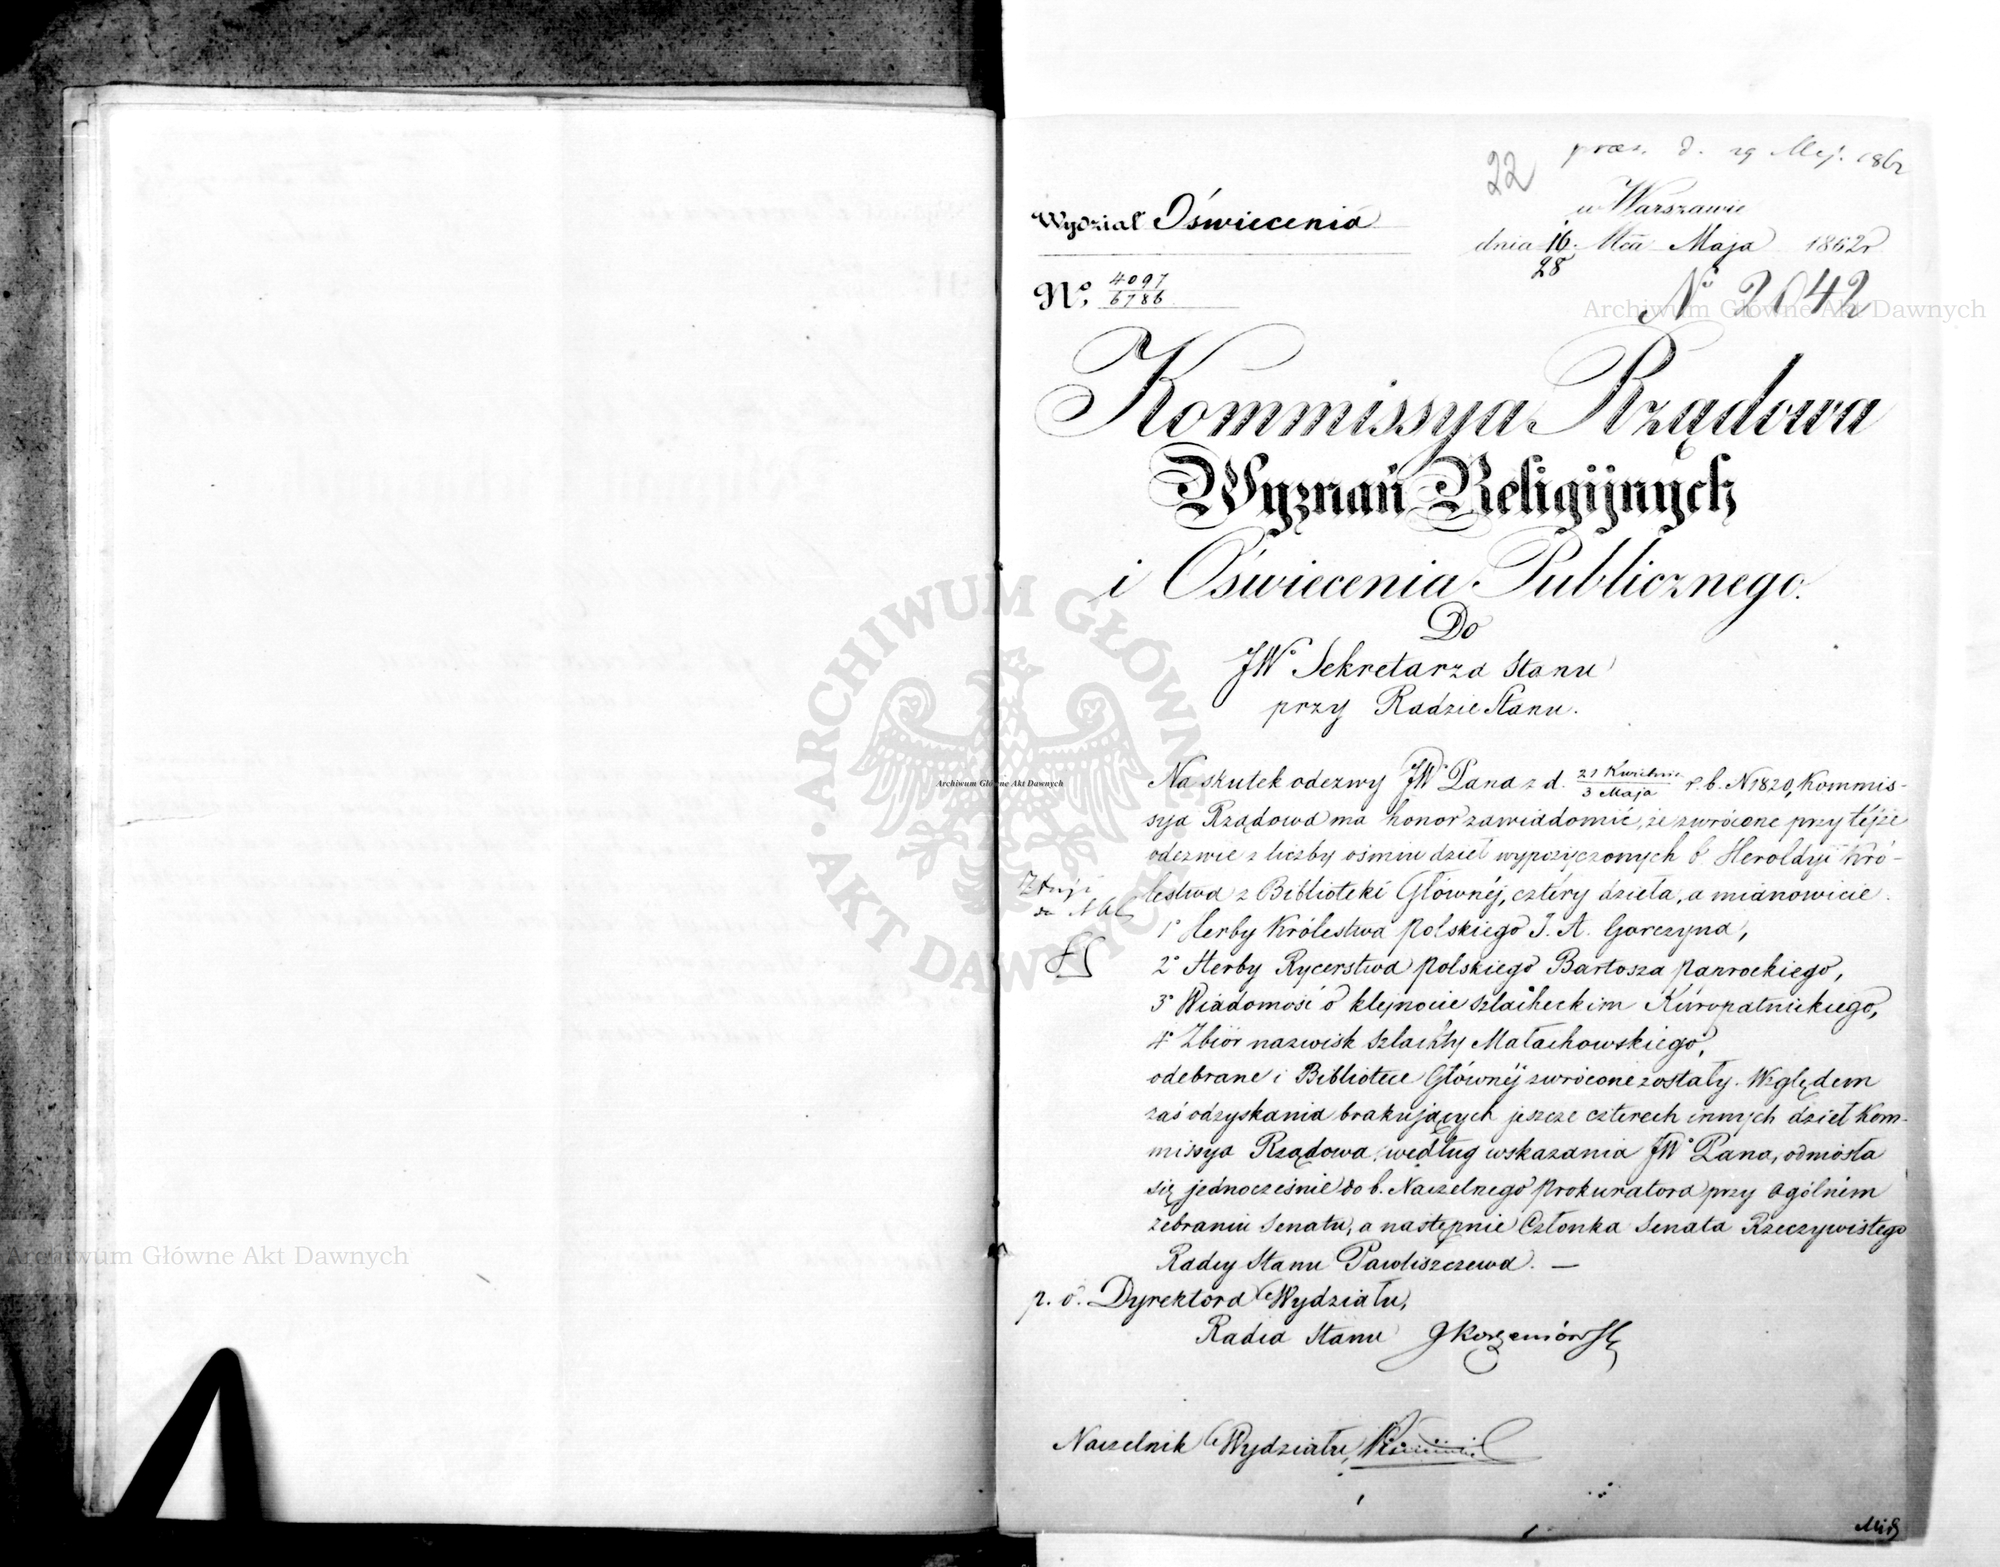 22
præs. d. 29 Maj. 1862
Wydział Oświecenia
w Warszawie
dnia 16/28 Mca Maja 1862 r
No. 4097/6786
N 2042
Kommissya Rządowa
Wyznań Religijnych
i Oświecenia Publicznego.
Do
JWo Sekretarza Stanu
przy Radzie Stanu.
Na skutek odezwy JWo Pana z d. 21 Kwietnia/3 Maja r. b. N 1820, Kommis-
sya Rządowa ma honor zawiadomić, że zwrócone przy tejże
odezwie z liczby ośmiu dzieł wypożyczonych b. Heroldyi Kró-
lestwa z Biblioteki Głównéj, cztéry dzieła, a mianowicie
1o Herby Królestwa Polskiego J. A. Gorczyna,
2o Herby Rycerstwa Polskiego Bartosza Paprockiego,
3o Wiadomość o klejnocie szlacheckim Kuropatnickiego,
4o Zbiór nazwisk szlachty Małachowskiego,
odebrane i Bibliotece Głównéj zwrócone zostały. Względem
zaś odzyskania brakujących jeszcze czterech innych dzieł Kom-
missya Rządowa, według wskazania JWo Pana, odniosła
się jednocześnie do b. Naczelnego Prokuratora przy Ogólném
zebraniu Senatu, a następnie Członka Senatu Rzeczywistego
Radcy Stanu Pawliszczewa. —
p. o. Dyrektora Wydziału,
Radca Stanu JKorzeniowski
Naczelnik Wydziału,
Archiwum Główne Akt Dawnych
Archiwum Główne Akt Dawnych
Archiwum Główne Akt Dawnych
ARCHIWUM GŁÓWNE AKT DAWNYCH